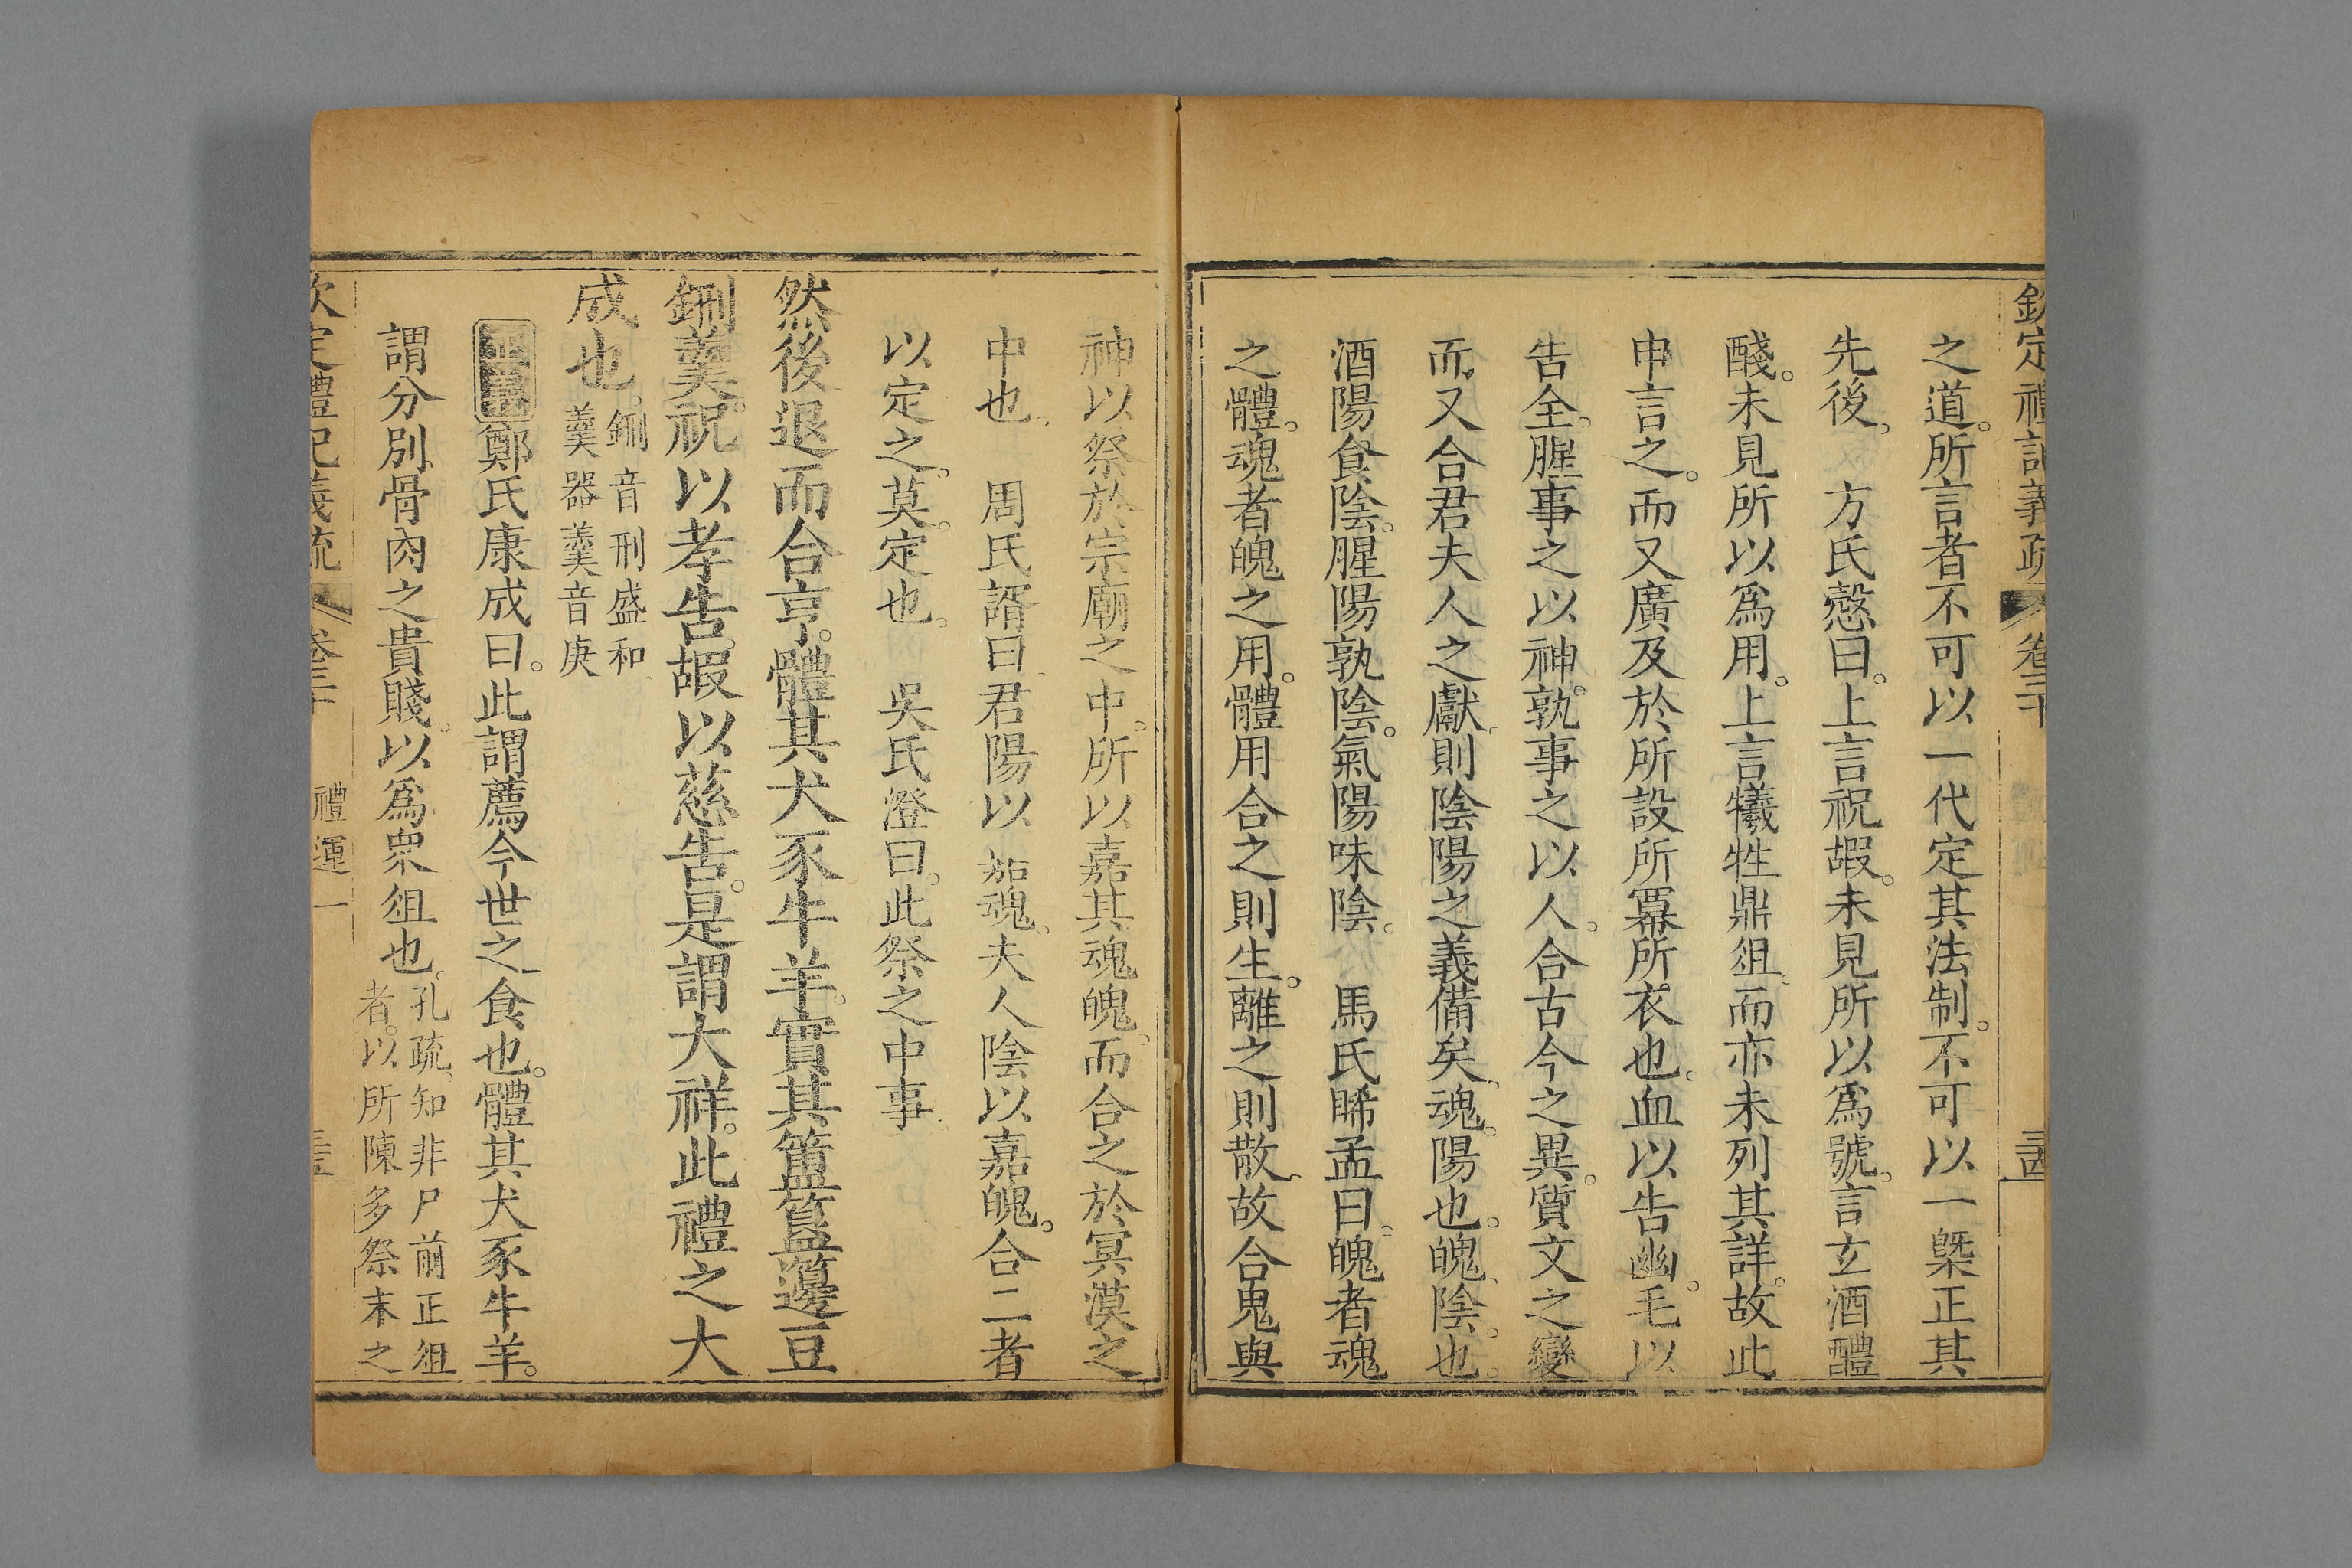 欽定禮記義疏 卷三十 三酉
之道。所言者不可以一代定其法制。不可以一槩正其
先後。 方氏慤曰。上言祝嘏。未見所以爲號。言玄酒醴
醆。未見所以爲用。上言犧牲鼎俎。而亦未列其詳。故此
申言之。而又廣及於所設所冪所衣也。血以告幽。毛以
告全。腥事之以神。孰事之以人。合古今之異。質文之變
而又合君夫人之獻。則陰陽之義備矣。魂。陽也。魄。陰也。
酒陽食陰。腥陽孰陰。氣陽味陰。 馬氏睎孟曰。魄者魂
之體。魂者魄之用。體用合之則生。離之則散。故合鬼與
神以祭於宗廟之中。所以嘉其魂魄。而合之於冥漠之
中也。 周氏諝曰。君陽以嘉魂。夫人陰以嘉魄。合二者
以定之。莫。定也。 吳氏澄曰。此祭之中事
然後退而合亨。體其犬豕牛羊。實其簠簋籩豆
鉶羹。祝以孝告。嘏以慈告。是謂大祥。此禮之大
成也。鉶音刑盛和
羹器羹音庚
正義鄭氏康成曰。此謂薦今世之食也。體其犬豕牛羊。
謂分別骨肉之貴賤。以爲眾俎也。孔疏。知非尸前正俎
者。以所陳多祭末之
欽定禮記義疏 卷三十 禮運一